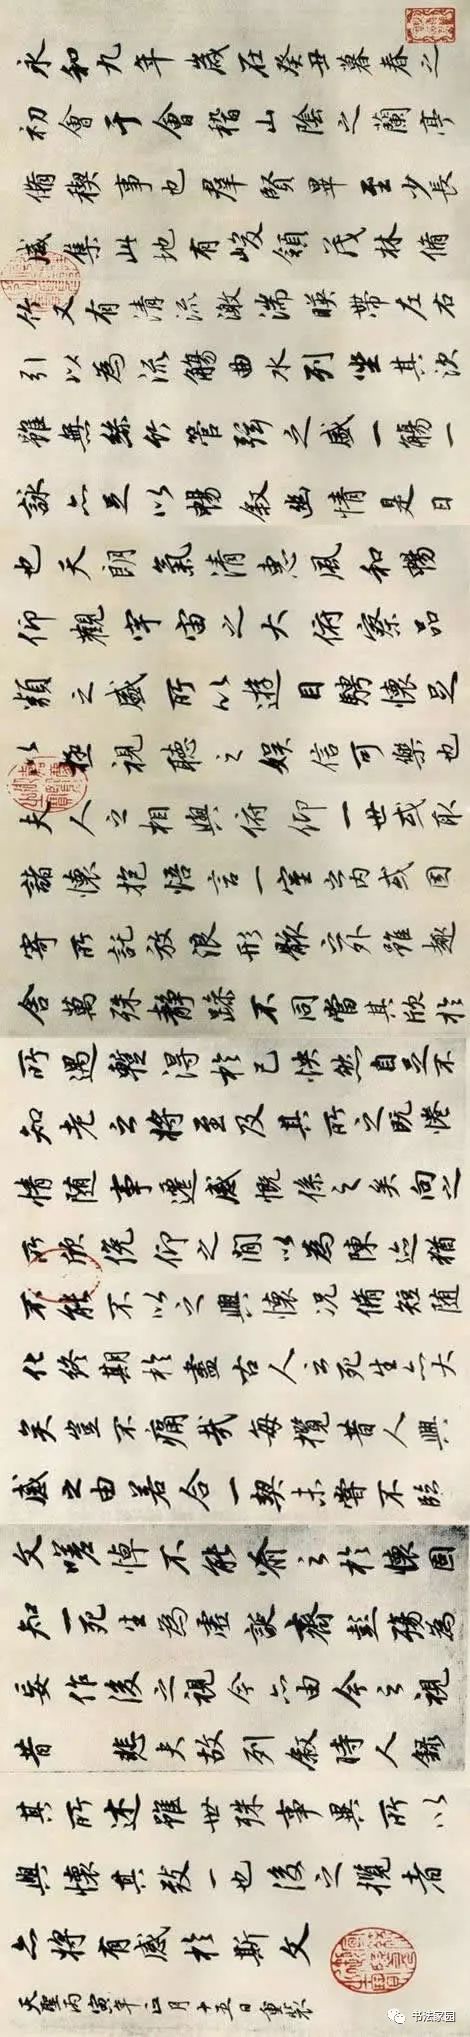 永和九年歲在癸丑暮春之
初會于會稽山陰之蘭亭
脩稧事也羣賢畢至少長
咸集此地有峻領茂林脩
竹又有清流激湍暎帶左右
引以為流觴曲水列坐其次
雖無絲竹管弦之盛一觴一
詠亦足以暢敘幽情是日
也天朗氣清惠風和暢
仰觀宇宙之大俯察品
類之盛所以遊目騁懷足
以極視聽之娛信可樂也
夫人之相與俯仰一世或取
諸懷抱悟言一室之內或因
寄所託放浪形骸之外雖趣
舍萬殊靜躁不同當其欣於
所遇蹔得於己怏然自足不
知老之將至及其所之既惓
情隨事遷感慨係之矣向之
所欣俛仰之閒以為陳迹猶
不能不以之興懷況脩短隨
化終期於盡古人云死生亦大
矣豈不痛哉每攬昔人興
感之由若合一契未嘗不臨
文嗟悼不能喻之於懷固
知一死生為虛誕齊彭殤為
妄作後之視今亦由今之視
昔 悲夫故列敘時人錄
其所述雖世殊事異所以
興懷其致一也後之攬者
亦將有感於斯文
天聖丙寅年正月十五日重裝
书法家园